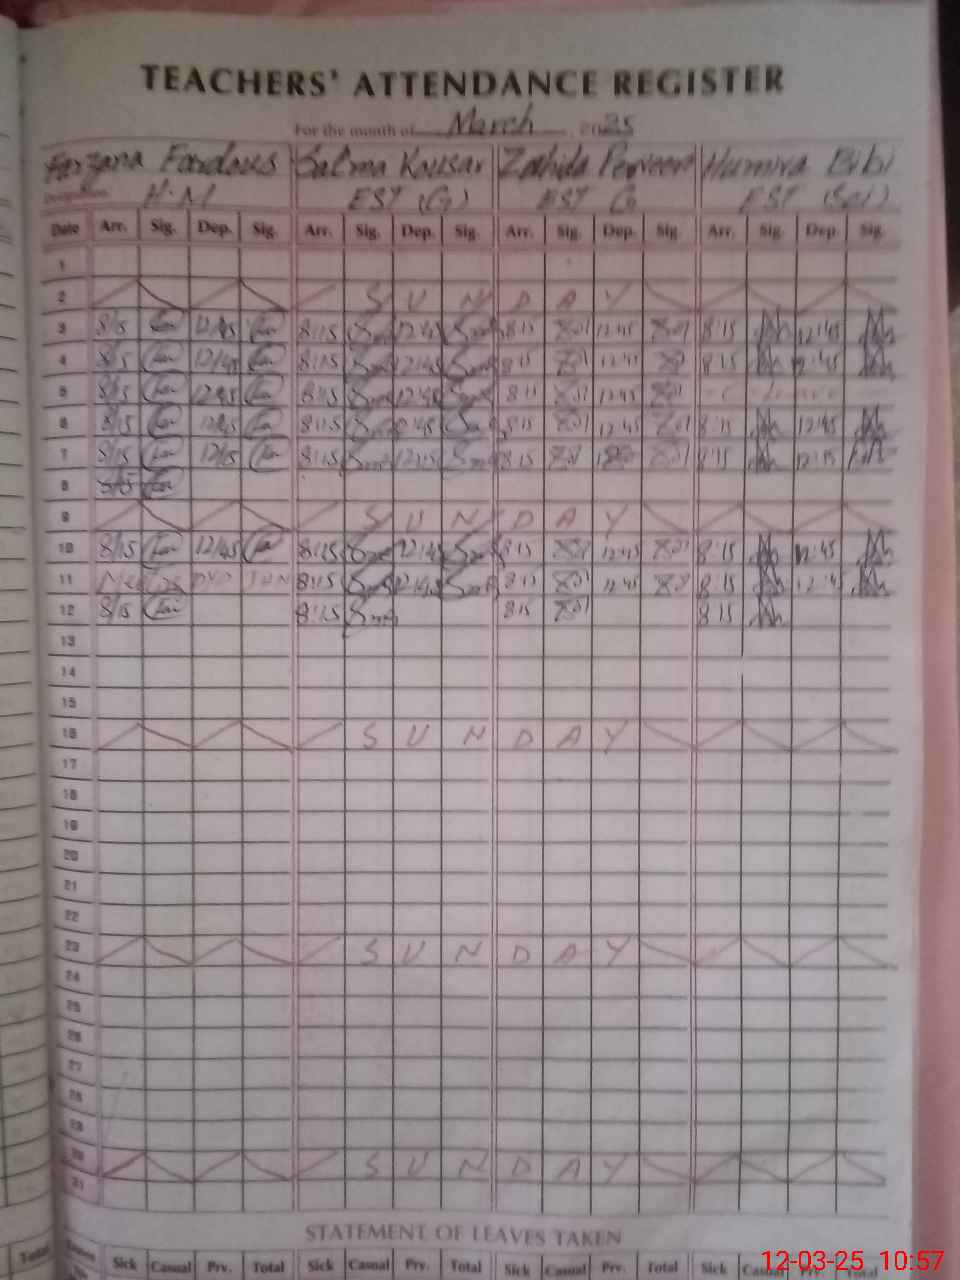 TEACHERS' ATTENDANCE REGISTER
For the month of March, 2025
Farzana Fardous Salma Kousar Zahida Perveen Humira Bibi
H.M EST (G) EST G EST (Sci)
Date Arr. Sig. Dep. Sig. Arr. Sig. Dep. Sig. Arr. Sig. Dep. Sig. Arr. Sig. Dep. Sig.
1
2 S U N D A Y
3 8/15 12/45 8:15 12:45 8:15 12:45 8:15 12:45
4 8/15 12/45 8:15 12:45 8:15 12:45 8:15 12:45
5 8/15 12/45 8:15 12:45 8:15 12:45
6 8/15 12/45 8:15 12:45 8:15 12:45 8:15 12:45
7 8/15 12/15 8:15 12:15 8:15 8:15 12:15
8 8/15
9 S U N D A Y
10 8/15 12/45 8:15 12:45 8:15 12:45 8:15 12:45
11 8:15 12:45 8:15 12:45 8:15 12:45
12 8/15 8:15 8:15 8:15
13
14
15
16 S U N D A Y
17
18
19
20
21
22
23 S U N D A Y
24
25
26
27
28
29
30 S U N D A Y
31
STATEMENT OF LEAVES TAKEN
Total Leaves Sick Casual Prv. Total Sick Casual Prv. Total Sick Casual Prv. Total Sick Casual Prv. Total
12-03-25 10:57